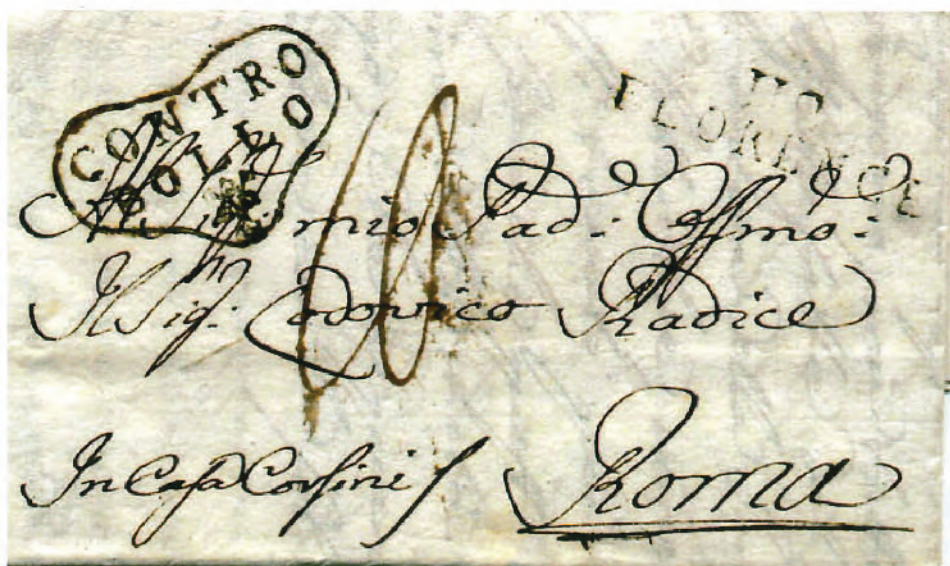 CONTRO
BOLLO
FLORENCE
mio Pad: Ossmo:
Il Sig: Lodovico Radice
In Casa Corsini
Roma